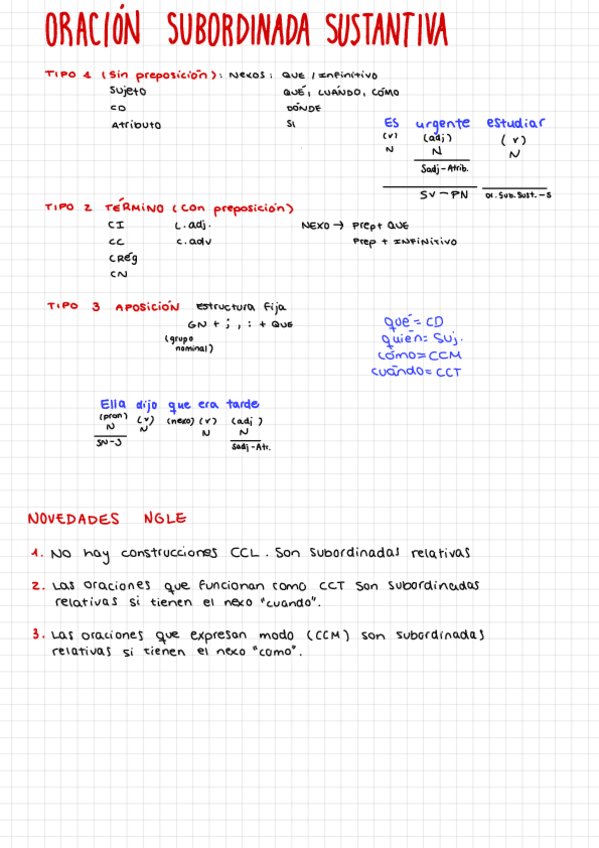 ORACIÓN SUBORDINADA SUSTANTIVA
TIPO 1 (Sin preposición): Nexos: QUE / Infinitivo
Sujeto QUÉ, CUÁNDO, CÓMO
CD DÓNDE
Atributo SI
Es urgente estudiar
(v) (adj) (v)
N N N
Sadj-Atrib.
SV-PN Or. Sub. Sust.-S
TIPO 2 TÉRMINO (con preposición)
CI C. adj. NEXO → Prep+ QUE
CC C. adv Prep + INFINITIVO
CRég
CN
TIPO 3 APOSICIÓN estructura fija
GN + ; , : + QUE
(grupo
nominal)
qué = CD
quién = Suj.
cómo = CCM
cuándo = CCT
Ella dijo que era tarde
(pron) (v) (nexo) (v) (adj)
N N N N
SN-S Sadj-Atr.
NOVEDADES NGLE
1. No hay construcciones CCL. Son subordinadas relativas
2. Las oraciones que funcionan como CCT son subordinadas
relativas si tienen el nexo "cuando".
3. Las oraciones que expresan modo (CCM) son subordinadas
relativas si tienen el nexo "como".